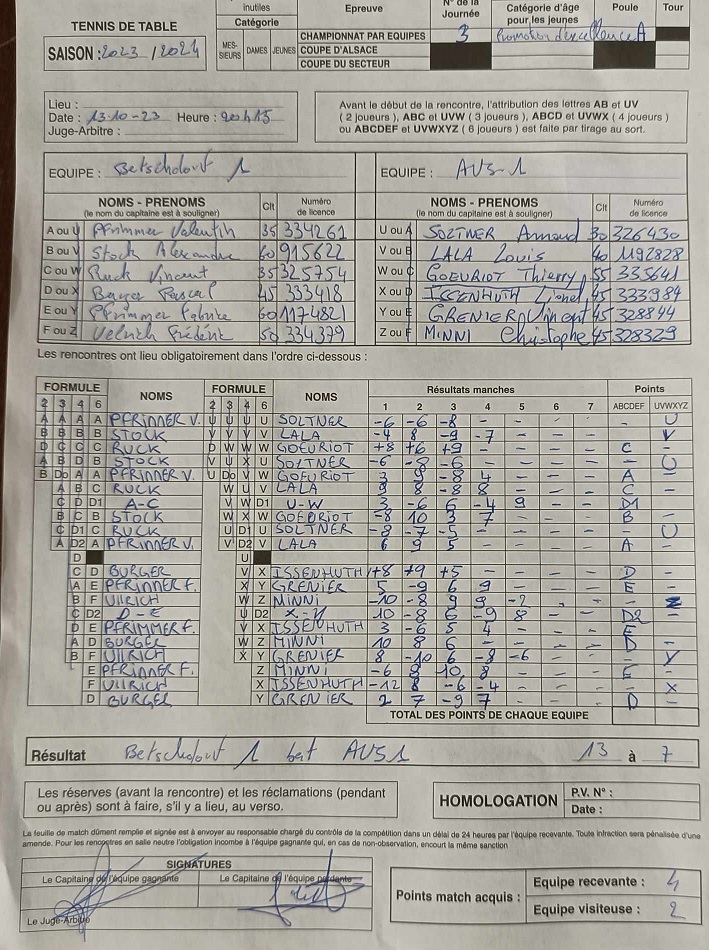 inutiles Epreuve N° de la Journée Catégorie d'âge pour les jeunes Poule Tour
TENNIS DE TABLE Catégorie
CHAMPIONNAT PAR EQUIPES 3 Promotion d'excellence A
SAISON : 2023 / 2024 MES-SIEURS DAMES JEUNES COUPE D'ALSACE
COUPE DU SECTEUR
Lieu :
Date : 13-10-23 Heure : 20h15
Juge-Arbitre :
Avant le début de la rencontre, l'attribution des lettres AB et UV
( 2 joueurs ), ABC et UVW ( 3 joueurs ), ABCD et UVWX ( 4 joueurs )
ou ABCDEF et UVWXYZ ( 6 joueurs ) est faite par tirage au sort.
EQUIPE : Betschdorf 1 EQUIPE : AUS-1
NOMS - PRENOMS (le nom du capitaine est à souligner) Clt Numéro de licence NOMS - PRENOMS (le nom du capitaine est à souligner) Clt Numéro de licence
A ou U Pfrimmer Valentin 35 334261 U ou A SOLTNER Arnaud 30 326430
B ou V Stock Alexandre 60 915622 V ou B LALA Louis 40 1192828
C ou W Ruck Vincent 35 325754 W ou C GOEURIOT Thierry 55 335641
D ou X Pascal 45 333418 X ou D ISSENHUTH Lionel 45 333984
E ou Y Pfrimmer Fabrice 60 1174821 Y ou E GRENIER Vincent 45 328844
F ou Z Frédéric 50 334379 Z ou F MINNI Christophe 45 328329
Les rencontres ont lieu obligatoirement dans l'ordre ci-dessous :
FORMULE NOMS FORMULE NOMS Résultats manches Points
2 3 4 6 2 3 4 6 1 2 3 4 5 6 7 ABCDEF UVWXYZ
A A A A PFRIMMER V. U U U U SOLTNER -6 -6 -8 - - - - - U
B B B B STOCK V V V V LALA -4 8 -9 -7 - - - - V
D C C C RUCK D W W W GOEURIOT +8 +6 +9 - - - - C -
A B D B STOCK V U X U SOLTNER -6 -8 -6 - - - - - U
B Do A A PFRIMMER V. U Do V W GOEURIOT 3 9 -8 4 - - - A -
A B C RUCK W U V LALA 9 8 -8 8 - - - C -
C D D1 A-C V W D1 U-W 3 -6 6 -4 9 - - D1 -
B C B STOCK W X W GOEURIOT -8 10 3 7 - - - B -
C D1 C RUCK U D1 U SOLTNER -8 -7 -5 - - - - - U
A D2 A PFRIMMER V. V D2 V LALA 6 9 5 - - - - A -
D U
C D BURGER V X ISSENHUTH +8 +9 +5 - - - - D -
A E PFRIMMER F. X Y GRENIER 5 -9 6 9 - - - E -
B F ULLRICH W Z MINNI -10 -8 9 9 -2 - - - Z
C D2 D-E U D2 X-Y 10 -8 6 -9 8 - - D2 -
D E PFRIMMER F. V X ISSENHUTH 3 -6 5 4 - - - E -
A D BURGER W Z MINNI 10 8 6 - - - - D -
B F ULLRICH X Y GRENIER 8 -10 6 -8 -6 - - - Y
E PFRIMMER F. Z MINNI -6 9 10 8 - - - E -
F ULLRICH X ISSENHUTH -12 8 -6 -4 - - - - X
D BURGER Y GRENIER 2 7 -9 7 - - - D -
TOTAL DES POINTS DE CHAQUE EQUIPE
Résultat Betschdorf 1 bat AUS1 13 à 7
Les réserves (avant la rencontre) et les réclamations (pendant
ou après) sont à faire, s'il y a lieu, au verso.
HOMOLOGATION P.V. N° :
Date :
La feuille de match dûment remplie et signée est à envoyer au responsable chargé du contrôle de la compétition dans un délai de 24 heures par l'équipe recevante. Toute infraction sera pénalisée d'une
amende. Pour les rencontres en salle neutre l'obligation incombe à l'équipe gagnante qui, en cas de non-observation, encourt la même sanction
SIGNATURES
Le Capitaine de l'équipe gagnante Le Capitaine de l'équipe perdante
Le Juge-Arbitre
Points match acquis : Equipe recevante : 4
Equipe visiteuse : 2